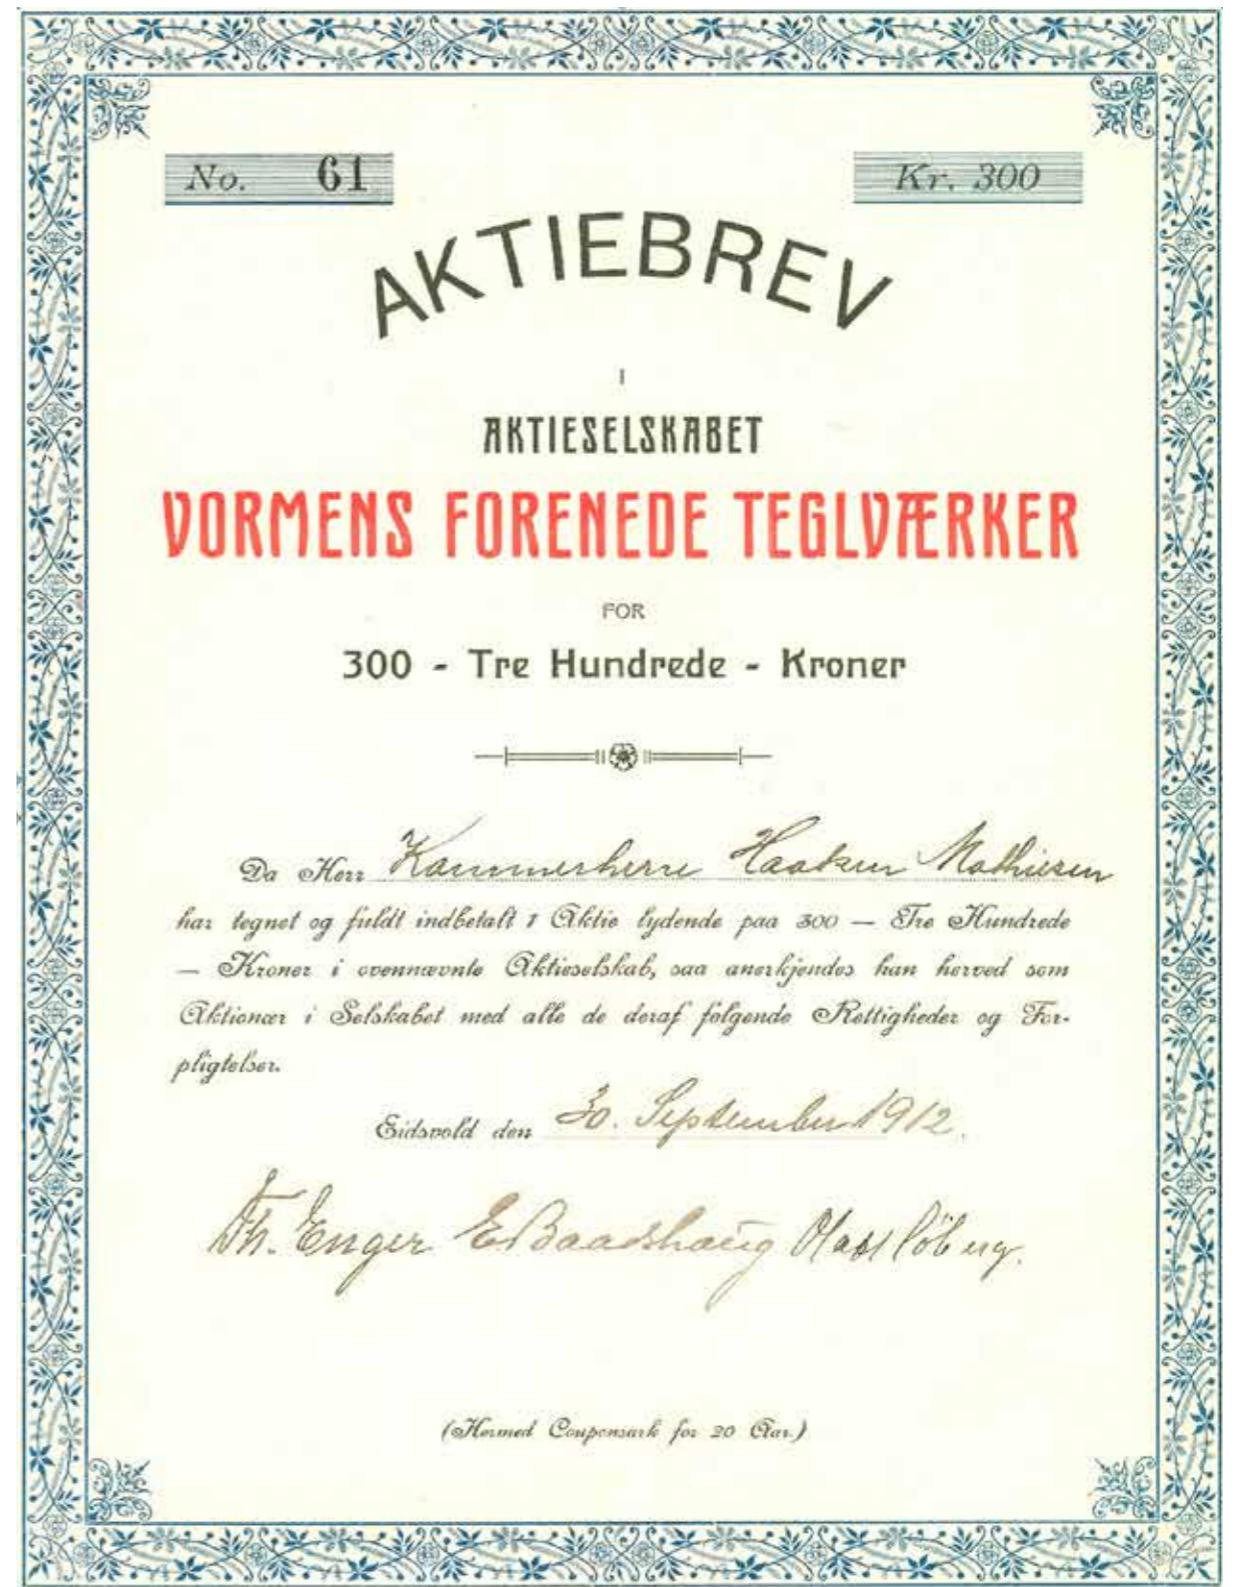 No. 61
Kr. 300
AKTIEBREV
I
AKTIESELSKABET
VORMENS FORENEDE TEGLVÆRKER
FOR
300 - Tre Hundrede - Kroner
Da Herr Kammerherre Haaken Mathiesen
har tegnet og fuldt indbetalt 1 Aktie lydende paa 300 — Tre Hundrede
— Kroner i ovennævnte Aktieselskab, saa anerkjendes han herved som
Aktionær i Selskabet med alle de deraf følgende Rettigheder og For-
pligtelser.
Eidsvold den 30. September 1912.
Th. Enger E Baadshaug Olaf
(Hermed Couponsark for 20 Aar.)